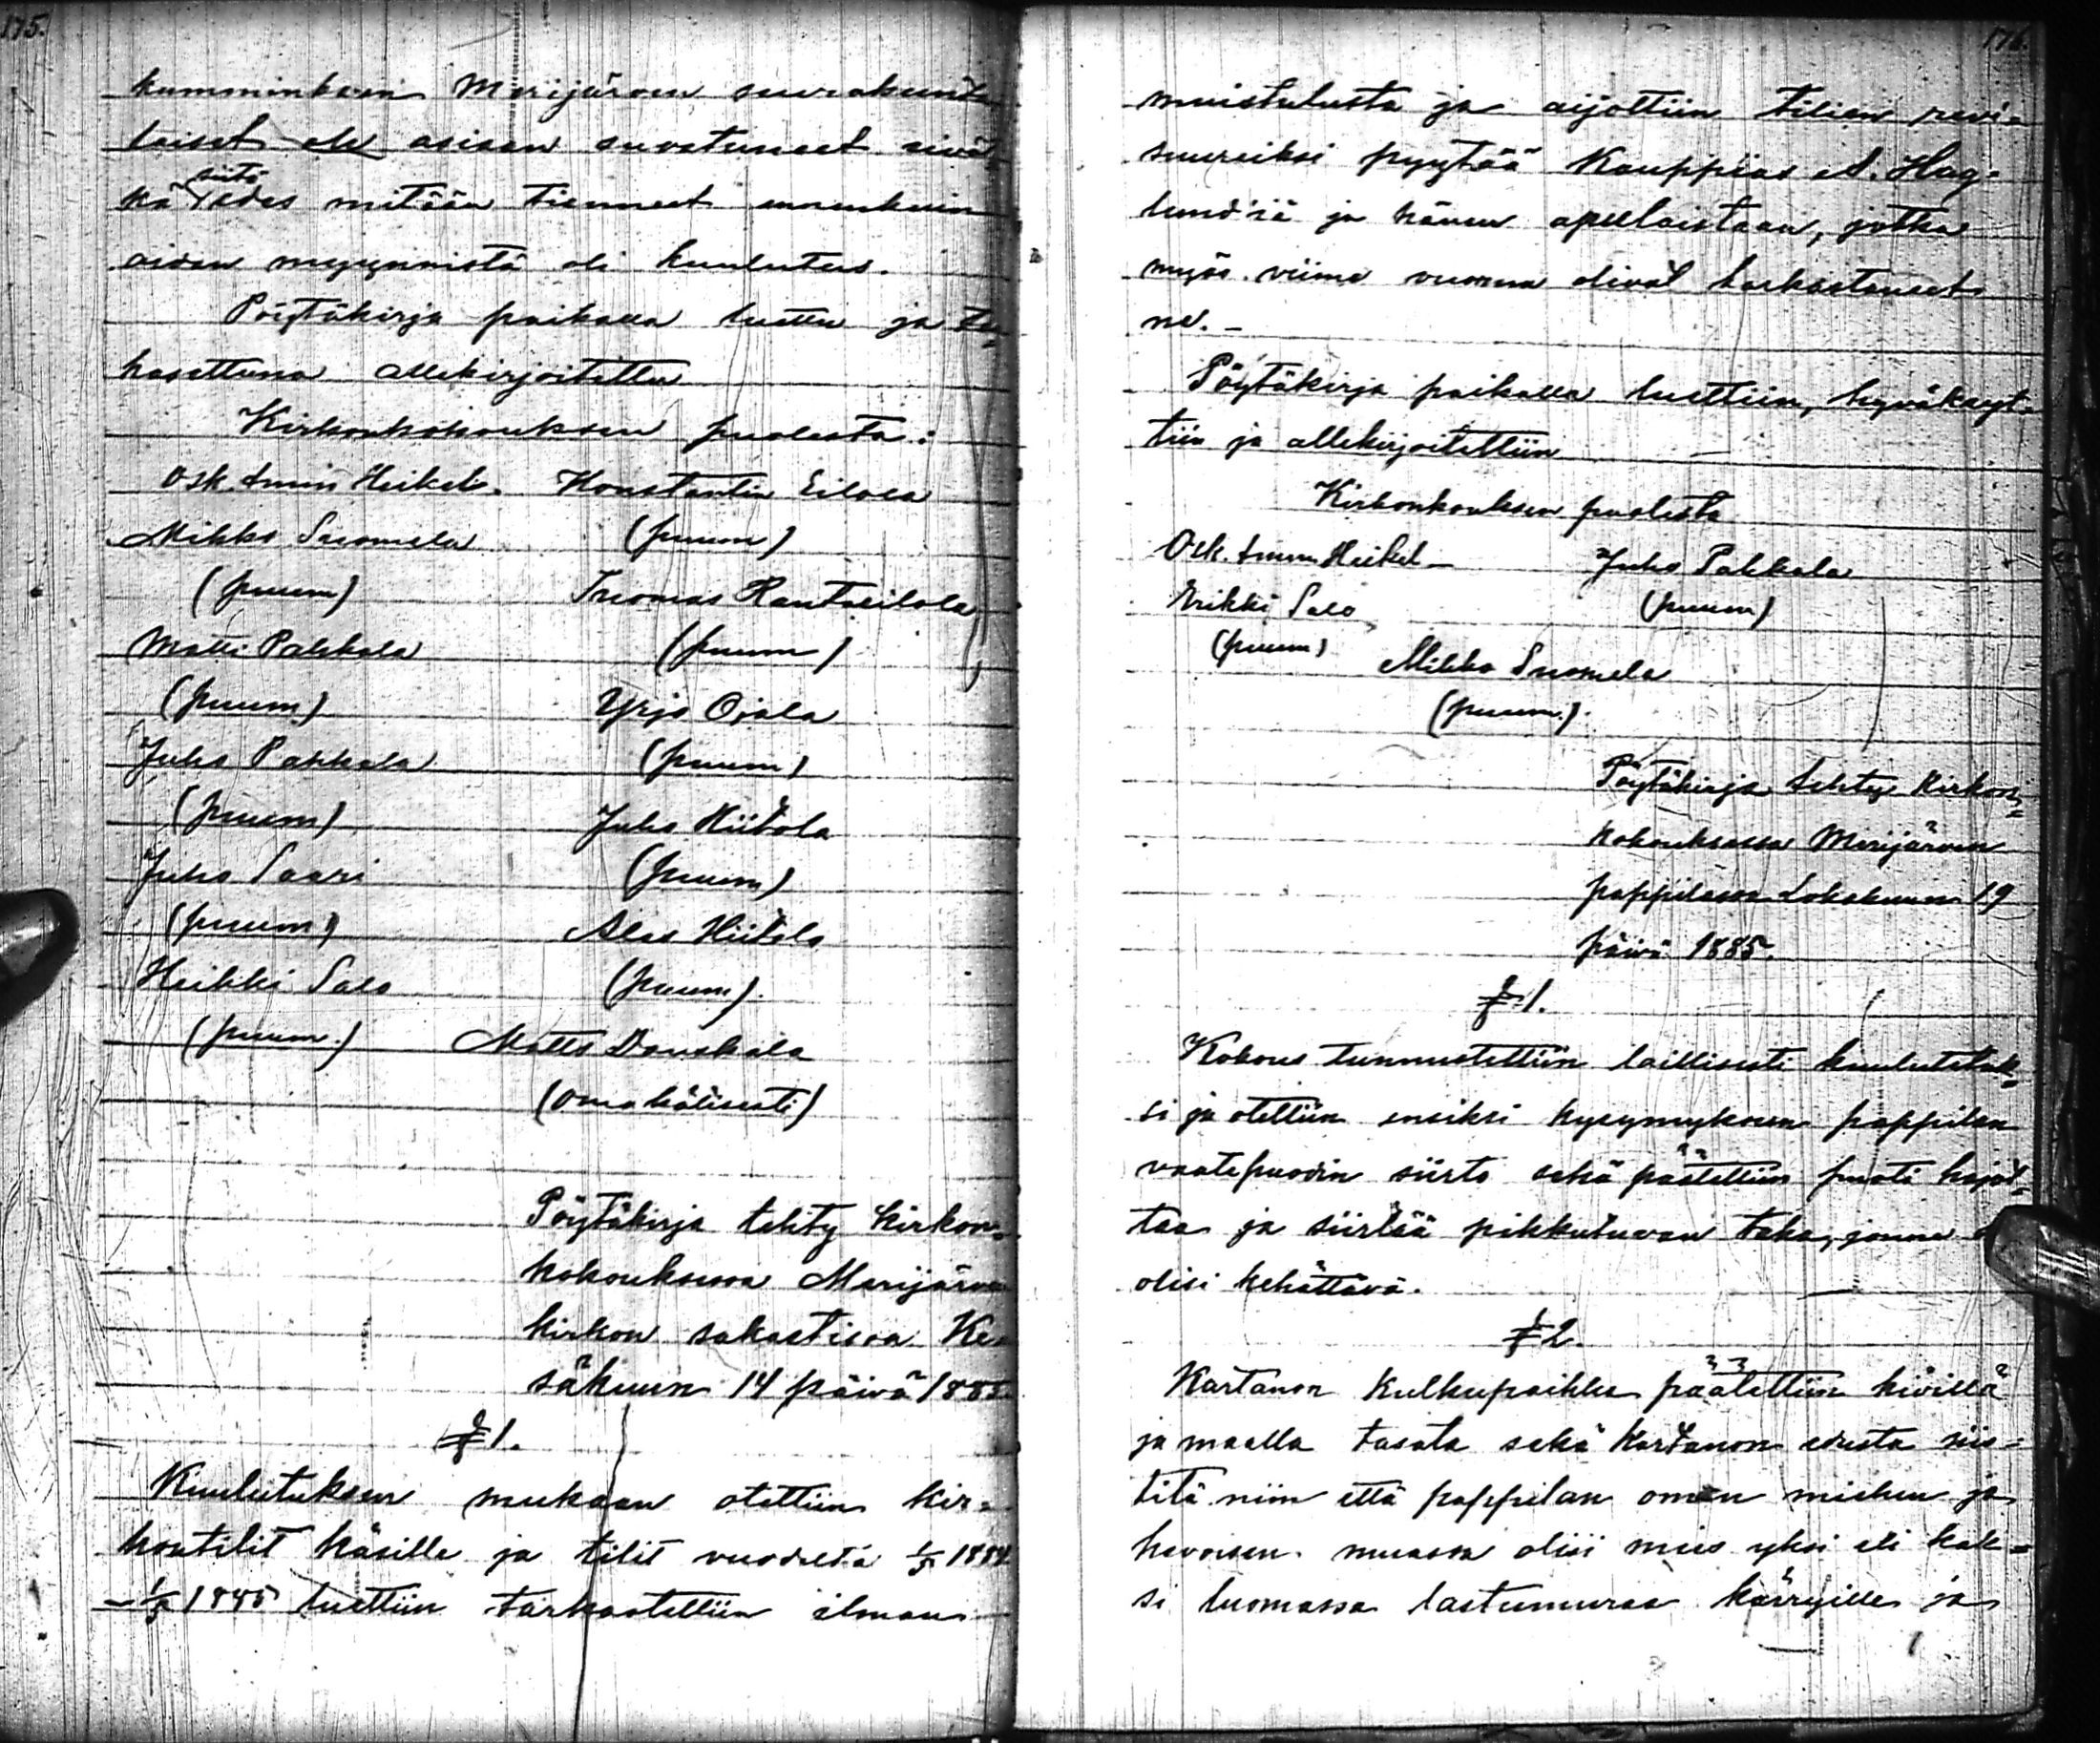 175.
kumminkaan Merijärven seurakunta
laiset ole asiaan suostuneet eivät=
kä siitä edes mitään tienneet ennenkuin
aidan myynnistä oli kuulutus.
Pöytäkirja paikalla luettu ja tar=
kasettuna allekirjoitettu
Kirkonkokouksen puolesta:
Osk. Amin Heikel. Konstantin Eilola
Mikko Suomela (puum)
(puum) Tuomas Rantaeilola
Matti Pahkala (puum)
(puum) Yrjö Ojala
Juho Pahkala (puum)
(puum) Juho Hiitola
Juho Saari (puum)
(puum) Alas Hiitola
Heikki Salo (puum).
(puum.) Matts Dauskala
(omakätisesti)
Pöytäkirja tehty kirkon=
kokouksessa Merijärven
kirkon sakastissa Ke=
säkuun 14 päivä 1885
§ 1.
Kuulutuksen mukaan otettiin kir=
kontilit käsille ja tilit vuodelta 1/5 1884
– 1/5 1885 luettiin tarkastettiin ilman
176.
muistutusta ja aijottiin tilien revi=
suureiksi pyytää Kauppias A. Hag=
lund'iä ja hänen apulaistaan, jotka
myös viime vuonna olivat tarkastaneet
ne. –
Pöytäkirja paikalla luettiin, hyväksyt=
tiin ja allekirjoitettiin
Kirkonkouksen puolesta
Osk. Amin Heikel Juho Pahkala
Erikki Salo (puum)
(puum) Mikko Suomela
(puum.).
Pöytäkirja tehty Kirkon=
kokouksessa Merijärven
pappilassa Lokakuun 19
päivä 1885.
§ 1.
Kokous tunnustettiin laillisesti kuulutetuk=
si ja otettiin ensiksi kysymykseen pappilan
vaatepuodin siirto sekä päätettiin puoti hajot=
taa ja siirtää pikkutuvan taka, jonne
olisi kehättävä.
§ 2.
Kartanon Kulkupaikka päätettiin kivillä
ja maalla tasata sekä Kartanon edusta siis=
titä niin että pappilan oman miehen ja
hevoisen muassa olisi mies yksi eli kak=
si luomassa lastumuraa kärryille ja